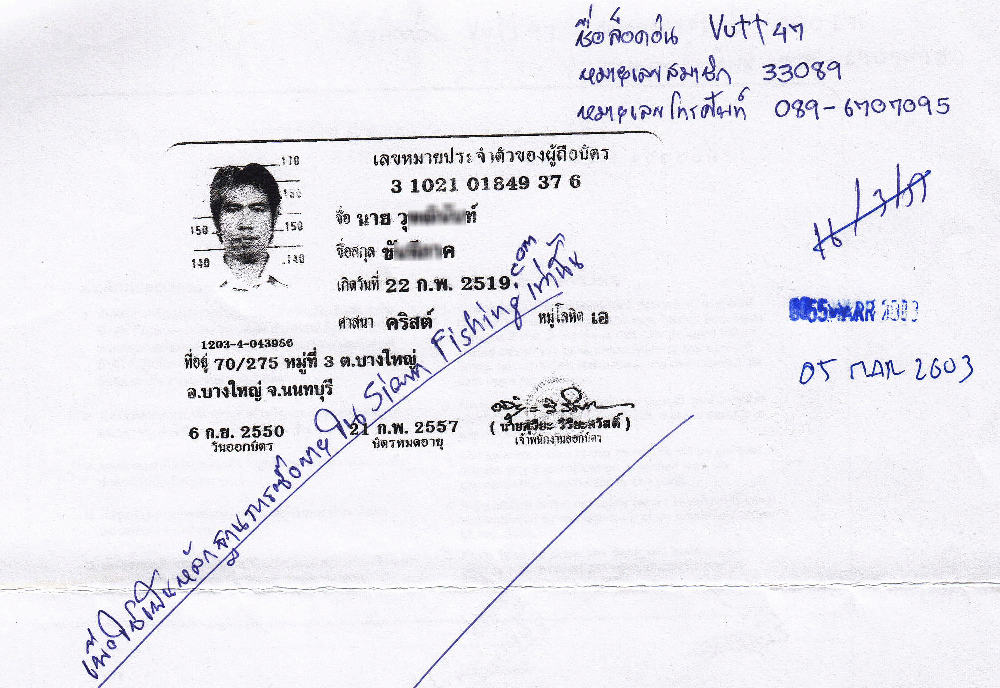 ชื่อล็อคอิน Vutt47
หมายเลขสมาชิก 33089
หมายเลขโทรศัพท์ 089-6707095
เลขหมายประจำตัวของผู้ถือบัตร
3 1021 01849 37 6
170
160
150 150
140 140
ชื่อ นาย
ชื่อสกุล
เกิดวันที่ 22 ก.พ. 2519
ศาสนา คริสต์ หมู่โลหิต เอ
1203-4-043986
ที่อยู่ 70/275 หมู่ที่ 3 ต.บางใหญ่
อ.บางใหญ่ จ.นนทบุรี
6 ก.ย. 2550
วันออกบัตร
21 ก.พ. 2557
บัตรหมดอายุ
( นายสุวิยะ วิริยะสวัสดิ์ )
เจ้าพนักงานออกบัตร
เพื่อใช้เป็นหลักฐานการซื้อขายใน Siam Fishing.com เท่านั้น
16/3/55
MAR 2003
05 MAR 2003